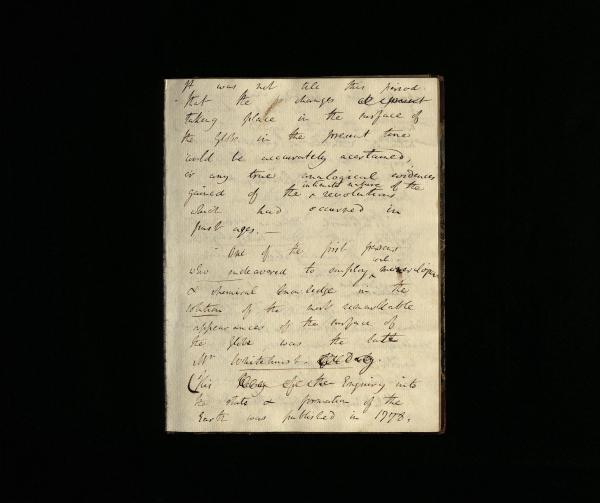 It was not till this period
that the changes at present
taking place in the surface of
the globe in the present time
could be accurately acertained,
or any true analogical evidences
intimate nature of the
gained of the revolutions
which had occurred in
past ages. —
- One of the first persons
who endeavored to employ
& chemical knowledge in the
solution of the most remarkable
appearances of the surface of
the globe was the late
Mr Whitehurst.
(His Enquiry into
the state & formation of the
Earth was published in 1778.